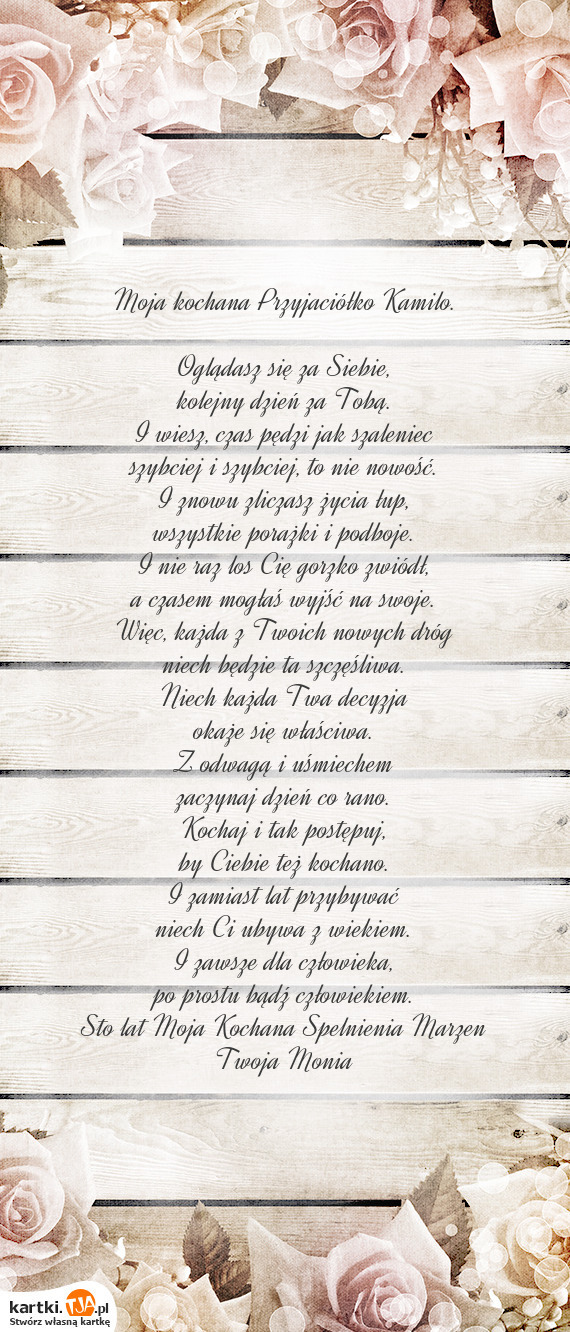 Moja kochana Przyjaciółko Kamilo.
Oglądasz się za Siebie,
kolejny dzień za Tobą.
I wiesz, czas pędzi jak szaleniec
szybciej i szybciej, to nie nowość.
I znowu zliczasz życia łup,
wszystkie porażki i podboje.
I nie raz los Cię gorzko zwiódł,
a czasem mogłaś wyjść na swoje.
Więc, każda z Twoich nowych dróg
niech będzie ta szczęśliwa.
Niech każda Twa decyzja
okaże się właściwa.
Z odwagą i uśmiechem
zaczynaj dzień co rano.
Kochaj i tak postępuj,
by Ciebie też kochano.
I zamiast lat przybywać
niech Ci ubywa z wiekiem.
I zawsze dla człowieka,
po prostu bądź człowiekiem.
Sto lat Moja Kochana Spelnienia Marzen
Twoja Monia
kartki.TJA.pl
Stwórz własną kartkę